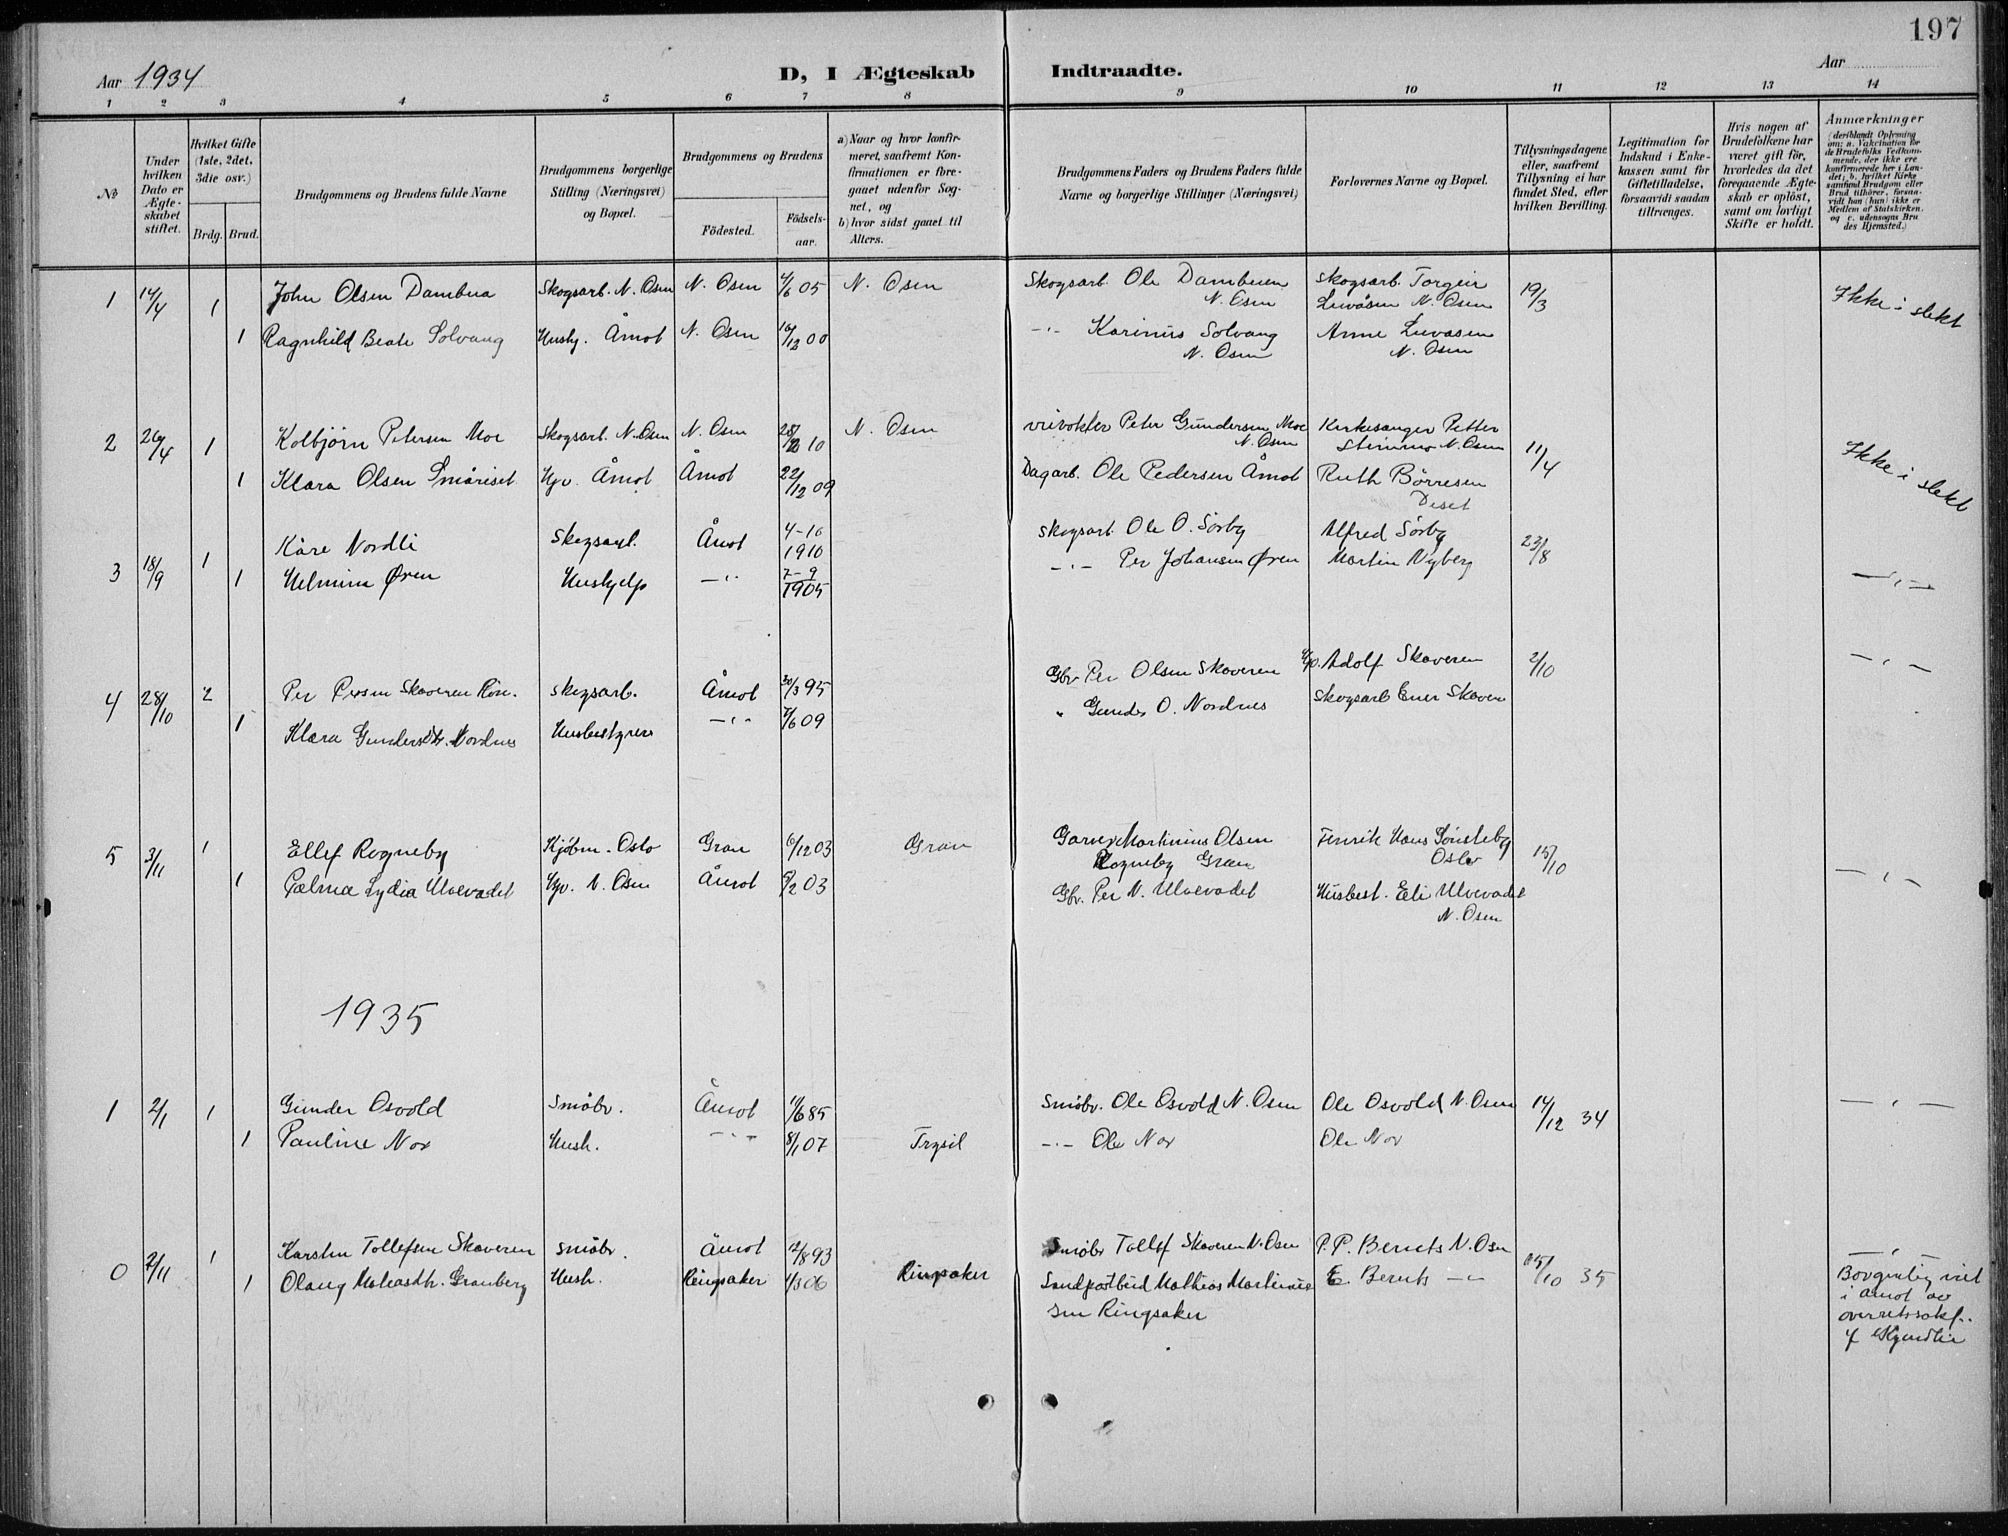 197
Aar 1934
D, I Ægteskab Indtraadte.
Aar
1 2 3 4 5 6 7 8 9 10 11 12 13 14
№
Under hvilken Dato er Ægteskabet stiftet.
Hvilket Gifte (1ste, 2det, 3die osv.)
Brdg. Brud.
Brudgommens og Brudens fulde Navne
Brudgommens borgerlige Stilling (Næringsvei) og Bopæl.
Brudgommens og Brudens
Födested.
Födsels-aar.
a) Naar og hvor konfirmeret, saafremt Konfirmationen er foregaaet udenfor Sognet, og
b) hvor sidst gaaet til Alters.
Brudgommens Faders og Brudens Faders fulde Navne og borgerlige Stillinger (Næringsvei)
Forlovernes Navne og Bopæl.
Tillysningsdagene eller, saafremt Tillysning ei har fundet Sted, efter hvilken Bevilling.
Legitimation for Indskud i Enkekassen samt for Giftetilladelse, forsaavidt saadan tiltrænges.
Hvis nogen af Brudefolkene har været gift för, hvorledes da det foregaaende Ægteskab er oplöst, samt om lovligt Skifte er holdt.
Anmærkninger
(deriblandt Oplysning om: a. Vaccination for de Brudefolks Vedkommende, der ikke ere konfirmerede her i Landet; b. hvilket Kirkesamfund Brudgom eller Brud tilhörer, forsaavidt han (hun) ikke er Medlem af Statskirken. og c. udensogns Brudes Hjemsted.)
1 14/4 1 John Olsen Dambua Skogsarb. N. Osen N. Osen 4/6 05 N. Osen Skogsarb. Ole Dambuen N. Osen Skogsarb. Torgeir Luvåsen N. Osen 19/3 Ikke i slekt
1 Ragnhild Beate Solvang Hushj. Åmot N. Osen 16/12 00 -"- Karinus Solvang N. Osen Anne Luvasen N. Osen
2 26/4 1 Kolbjörn Petersen Moe Skogsarb. N. Osen N. Osen 10 N. Osen Peter Gundersen Moe N. Osen Kirkesanger Petter N. Osen 11/4 Ikke i slekt
1 Klara Olsen Småriset Hv. Åmot Åmot 22/12 09 Dagarb. Ole Pedersen Åmot Ruth Börresen Deset
3 18/9 1 Kåre Nordli Skogsarb. Åmot 4-10 1910 Skogsarb. Ole O. Sörby Alfred Sörby 23/8 -"-
1 Helmine Øren Hushjelp -"- 7-9 1905 -"- Per Johansen Øren Martin Nyberg
4 28/10 2 Per Persen Skaveren Skogsarb. Åmot 20/3 95 Gbr. Per Olsen Skaveren Adolf Skaveren 2/10 -"-
1 Klara Gundersdtr. Nordnes Husbestyrer -"- 7/6 09 " Gunder O. Nordnes Skogsarb. Ener Skaven
5 3/11 1 Ellef Rogneby Kjöbm. Oslo Gran 6/12 03 Gran Garver Martinius Olsen Rogneby Gran Henrik Hans Sönsteby Oslo 15/10 -"-
1 Palma Lydia Ulvevadet Hv. N. Osen Åmot 8/2 03 Gbr. Per N. Ulvevadet Husbest. Eli Ulvevadet N. Osen
1935
1 2/1 1 Gunder Osvold Småbr. Åmot 11/6 85 Småbr. Ole Osvold N. Osen Ole Osvold N. Osen 14/12 34 -"-
1 Pauline Nor Hush. -"- 8/1 07 Trysil -"- Ole Nor Ole Nor
0 2/11 1 Karsten Tollefsen Skaveren Småbr. Åmot 2/8 93 Småbr Tollef Skaveren N. Osen P. P. Beruts N. Osen 15/10 35 -"-
1 Olaug Mateasdtr. Granberg Hush. Ringsaker 1/3 06 Ringsaker Landpostbud Mathias Martinius sen Ringsaker E. Beruts -"- Borgerlig viet
i Åmot av
overretssakf.